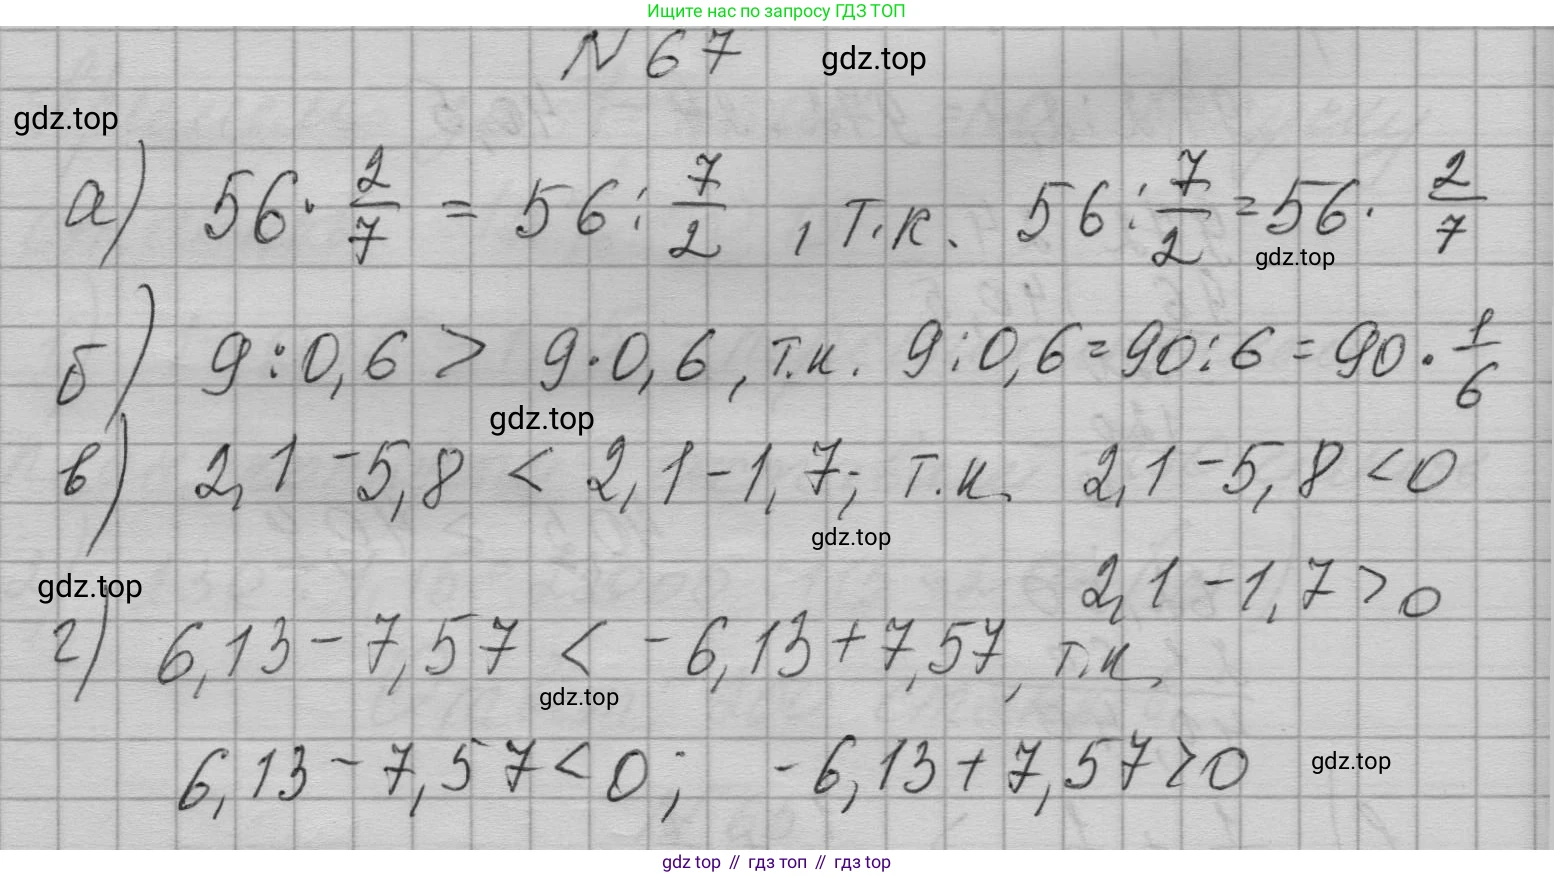 Ищите нас по запросу ГДЗ ТОП
N 67
gdz.top
gdz.top
а) 56 · 2/7 = 56 : 7/2 , т.к. 56 : 7/2 = 56 · 2/7
gdz.top
б) 9 : 0,6 > 9 · 0,6 , т.к. 9 : 0,6 = 90 : 6 = 90 · 1/6
gdz.top
в) 2,1 - 5,8 < 2,1 - 1,7; т.к. 2,1 - 5,8 < 0
gdz.top
2,1 - 1,7 > 0
gdz.top
г) 6,13 - 7,57 < - 6,13 + 7,57, т.к.
gdz.top
6,13 - 7,57 < 0; - 6,13 + 7,57 > 0
gdz.top
gdz top // гдз топ // gdz top